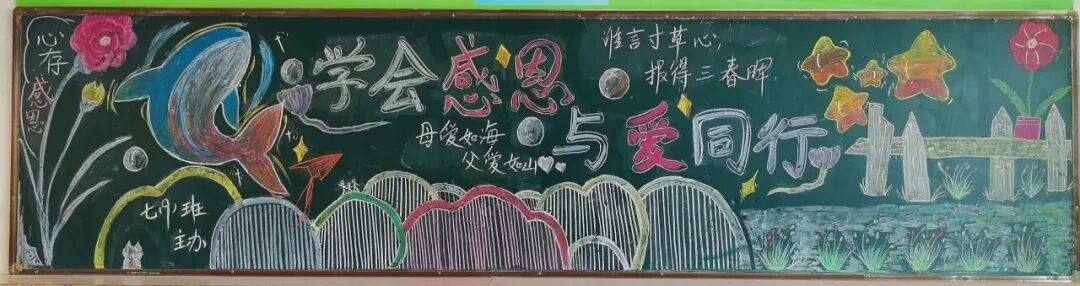 心存感恩
学会感恩
谁言寸草心,
报得三春晖.
母爱如海
父爱如山
与爱同行
七(9)班
主办